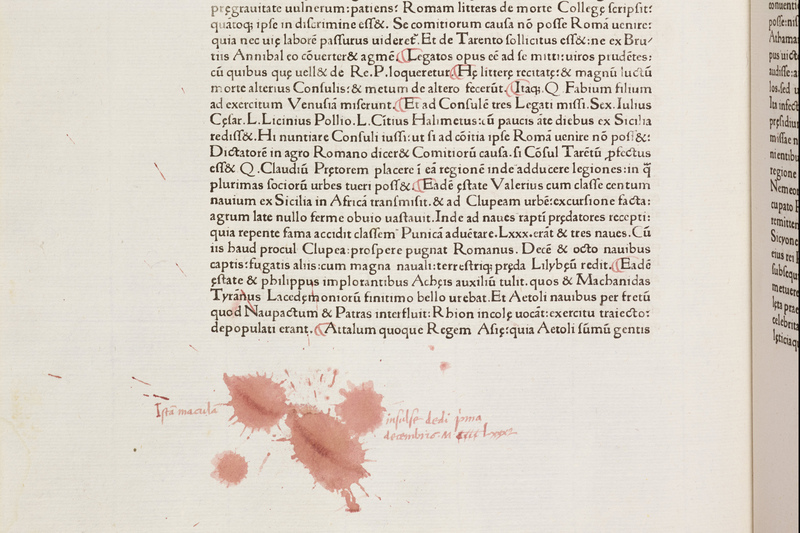 pręgrauitate uulnerum: patiens? Romam litteras de morte Collegę scripsit:
quātoq; ipse in discrimine ess&. Se comitiorum causa nō posse Romā uenire:
quia nec uię laborē passurus uideret᷑. Et de Tarento sollicitus ess&: ne ex Bru/
tiis Annibal eo cōuerter& agmē. Legatos opus eē ad se mitti: uiros prudētes:
cū quibus quę uell& de Re. P. loqueretur. Hę litterę recitatę: & magnū luctū
morte alterius Consulis: & metum de altero fecerūt. Itaq;. Q. Fabium filium
ad exercitum Venusiā miserunt. Et ad Consulē tres Legati missi. Sex. Iulius
Cęsar. L. Licinius Pollio. L. Citius Halimetus: cū paucis āte diebus ex Sicilia
rediss&. Hi nuntiare Consuli iussi: ut si ad cōitia ipse Romā uenire nō poss&:
Dictatorē in agro Romano dicer& Comitiorū causa. si Cōsul Tarētū ꝓfectus
ess& Q. Claudiū Prętorem placere ī eā regionē inde adducere legiones: in q̄
plurimas sociorū urbes tueri poss&. Eadē ęstate Valerius cum classe centum
nauium ex Sicilia in Africā transmisit. & ad Clupeam urbē: excursione facta:
agrum late nullo ferme obuio uastauit. Inde ad naues rapti prędatores recepti:
quia repente fama accidit classem Punicā aduētare. Lxxx. erāt & tres naues. Cū
iis haud procul Clupea: prospere pugnat Romanus. Decē & octo nauibus
captis: fugatis aliis: cum magna nauali: terrestriq; pręda Lilybęū redit. Eadē
ęstate & philippus implorantibus Achęis auxiliū tulit. quos & Machanidas
Tyrānus Lacedęmoniorū finitimo bello urebat. Et Aetoli nauibus per fretū
quod Naupactum & Patras interfluit: Rhion incolę uocāt: exercitu traiecto:
depopulati erant. Attalum quoque Regem Asię: quia Aetoli sūmū gentis
Istā macula
insulse dedi p̄ma
decembris M